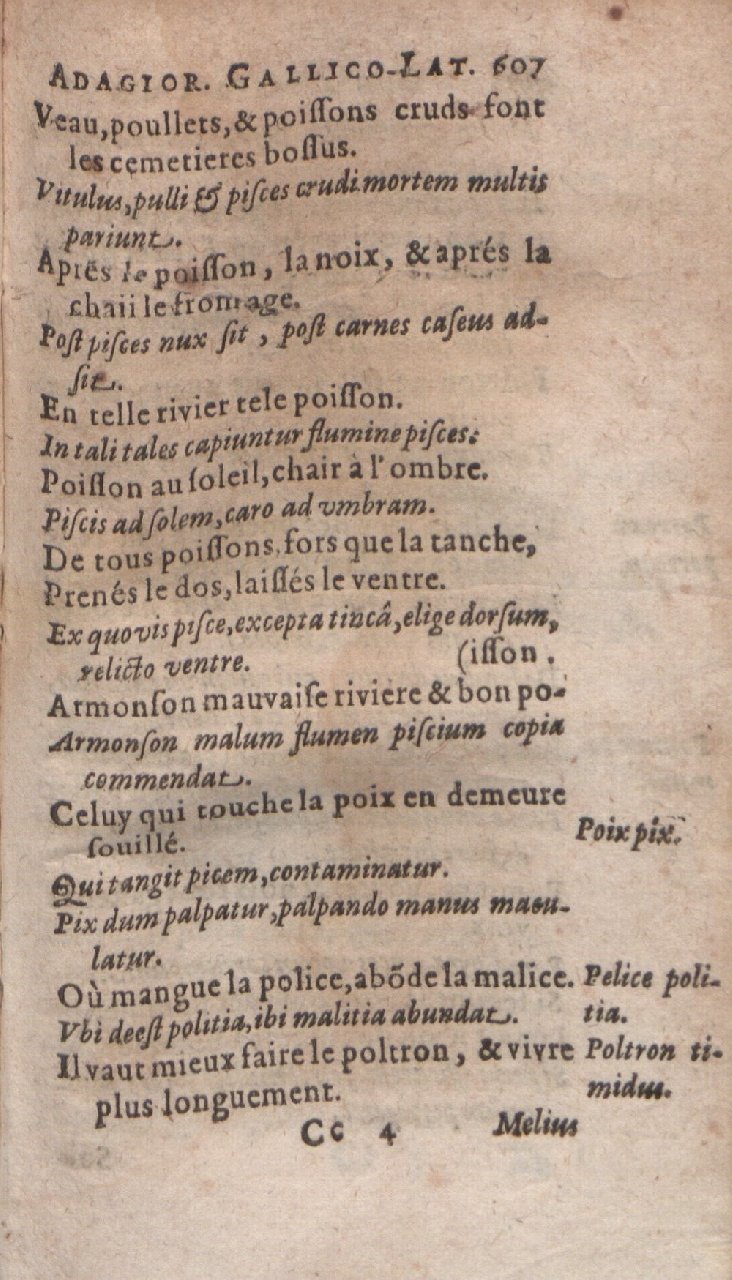 ADAGIOR. GALLICO-LAT. 607
Veau, poullets, & poiſſons cruds font
les cemetieres boſſus.
Vitulus, pulli & piſces crudi mortem multis
pariunt.
Aprés le poiſſon, la noix, & aprés la
chaii le fromage.
Poſt piſces nux ſit, poſt carnes caſeus ad-
ſit.
En telle rivier tele poiſſon.
In tali tales capiuntur flumine piſces.
Poiſſon au ſoleil, chair à l'ombre.
Piſcis ad ſolem, caro ad vmbram.
De tous poiſſons, fors que la tanche,
Prenés le dos, laiſſés le ventre.
Ex quovis piſce, excepta tincâ, elige dorſum,
relicto ventre. (iſſon.
Armonſon mauvaiſe riviere & bon po-
Armonſon malum flumen piſcium copia
commendat.
Celuy qui touche la poix en demeure
ſouillé. Poix pix.
Qui tangit picem, contaminatur.
Pix dum palpatur, palpando manus macu-
latur.
Où mangue la police, abõde la malice. Pelice poli-
Vbi deeſt politia, ibi malitia abundat. tia.
Il vaut mieux faire le poltron, & vivre Poltron ti-
plus longuement. midus.
Cc 4 Melius